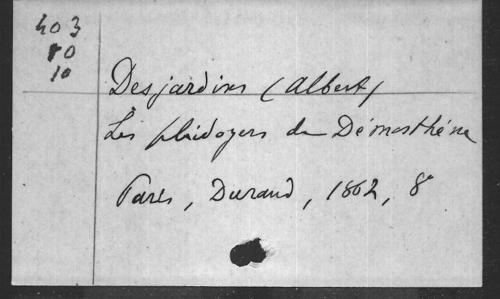 403
80
10
Desjardins (Albert)
Les plaidoyers de Démosthène
Paris, Durand, 1862, 8°